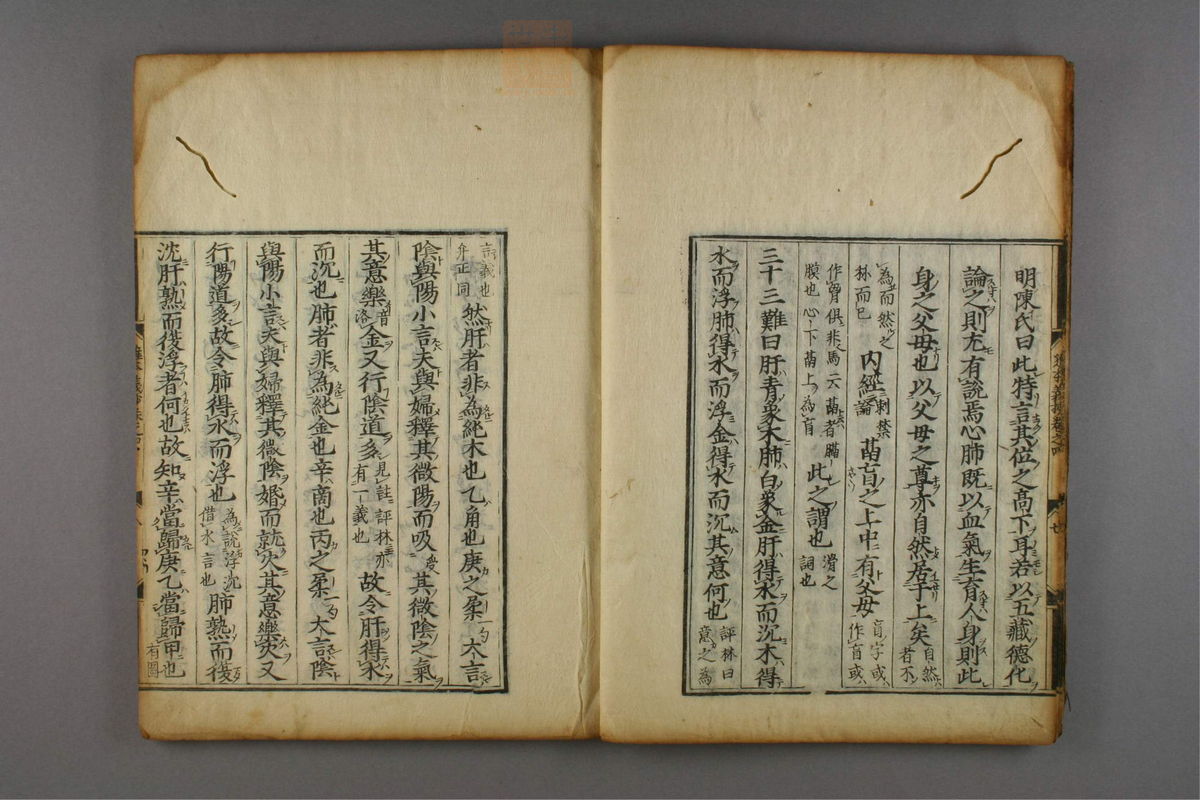 明陳氏曰此特言其位之高下耳若以五藏德化
論之則尤有說焉心肺既以血氣生育人身則此
身之父母也以父母之尊亦自然居于上矣 自然者不
為而然之林而已 內經 刺禁論 鬲肓之上中有父母 肓字或作盲或
作膏俱非馬云鬲者膈膜也心下鬲上為肓 此之謂也 滑之詞也
三十三難曰肝青象木肺白象金肝得水而沉木得
水而浮肺得水而浮金得水而沉其意何也 評林曰意之為
言義也弁正同 然肝者非為純木也乙角也庚之柔 一句 大言
陰與陽小言夫與婦釋其微陽而吸其微陰之氣
其意樂 音洛 金又行陰道多 見註評林亦有一義也 故令肝得水
而沉也肺者非為純金也辛商也丙之柔 一句 大言陰
與陽小言夫與婦釋其微陰婚而就火其意樂火又
行陽道多故令肺得水而浮也 為說浮沉借水言也 肺熟而復
沈肝熟而復浮者何也故知辛當歸庚乙當歸甲也 有圖